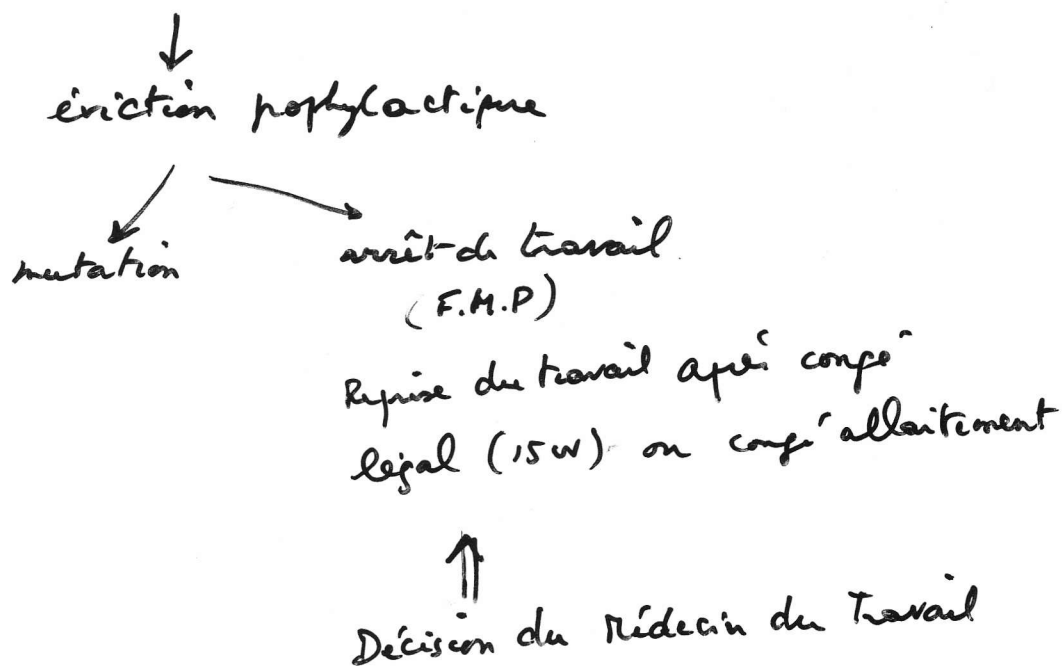 éviction pophylactique
mutation
arrêt de travail
(F.M.P)
Reprise du travail après congé
légal (15W) ou congé allaitement
Décision du Médecin du Travail